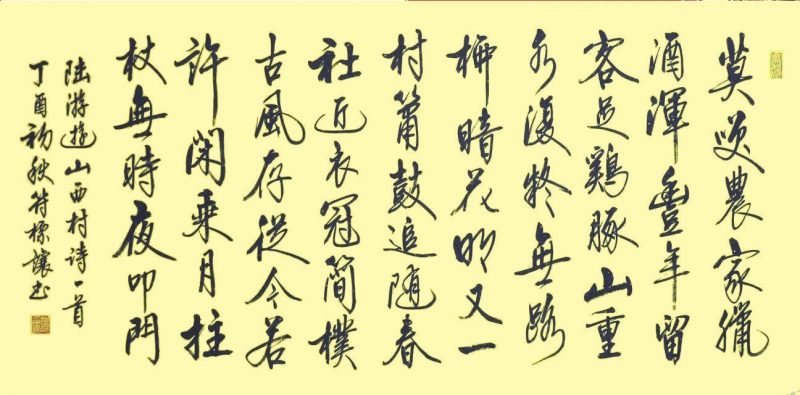 莫笑農家臘
酒渾豐年留
客足鷄豚山重
水復疑無路
柳暗花明又一
村簫鼓追随春
社近衣冠簡樸
古風存從今若
許閑乘月拄
杖無時夜叩門
陸游遊山西村诗一首
丁酉初秋符標讓书